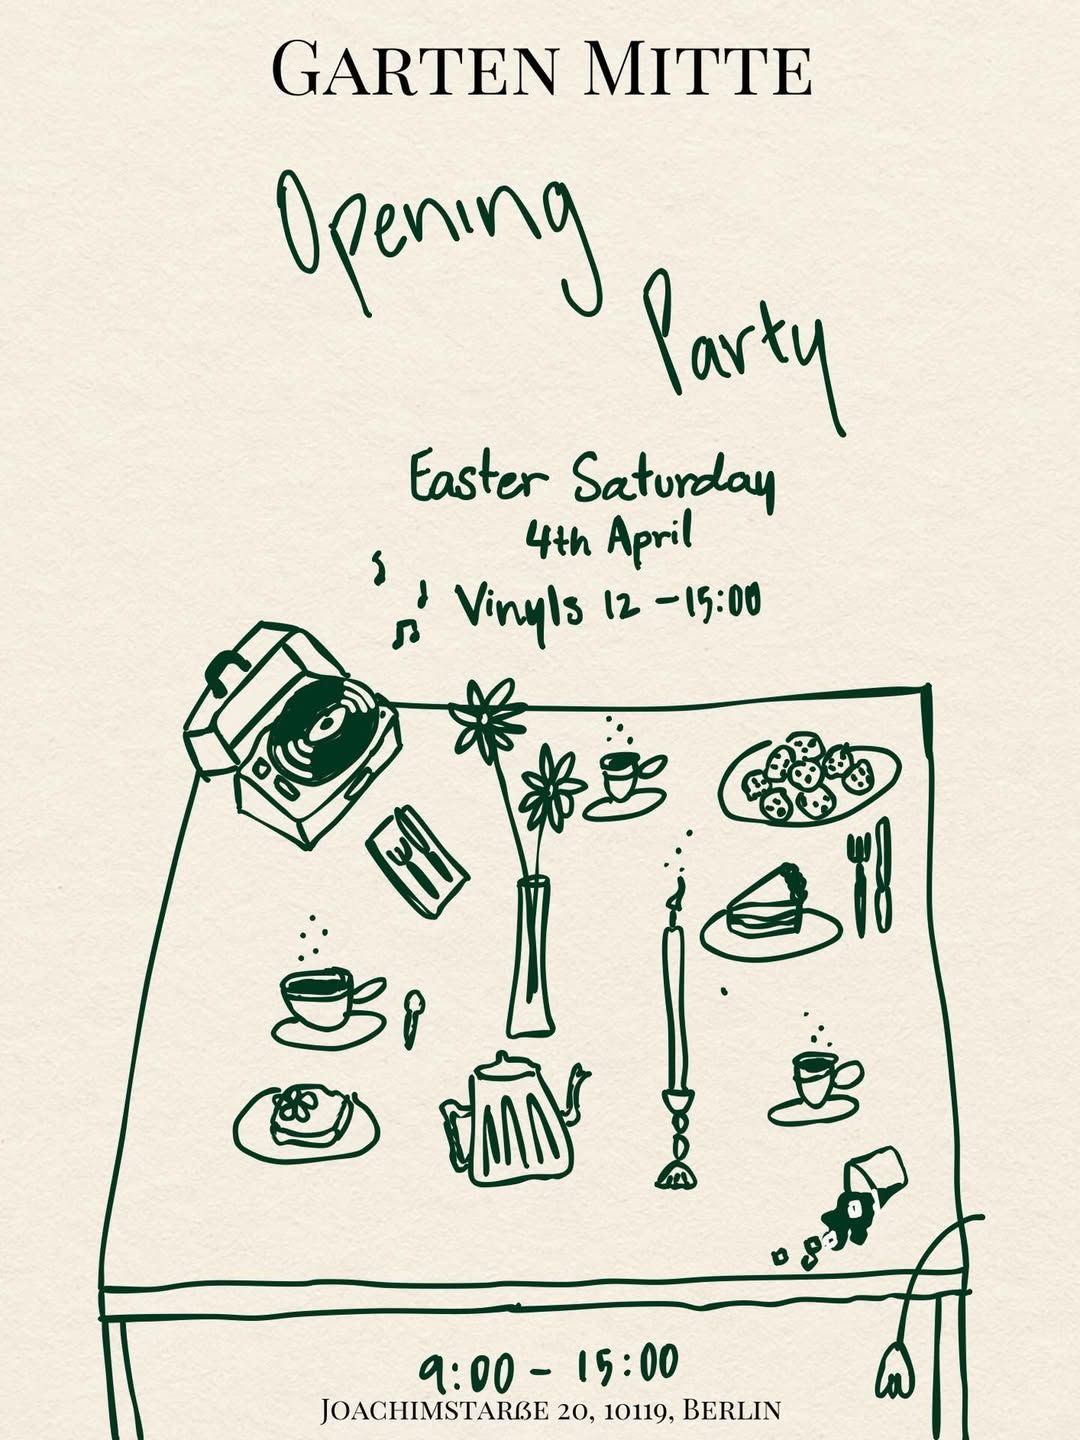 GARTEN MITTE
Opening
Party
Easter Saturday
4th April
Vinyls 12 - 15:00
9:00 - 15:00
JOACHIMSTARßE 20, 10119, BERLIN